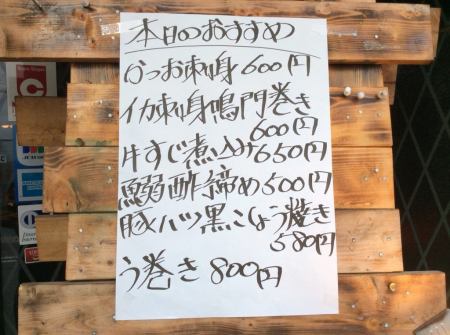 本日のおすすめ
かつお刺身 600円
イカ刺身鳴門巻き
600円
牛すじ煮込み650円
鰯酢締め500円
豚ハツ黒こしょう焼き
580円
う巻き 800円